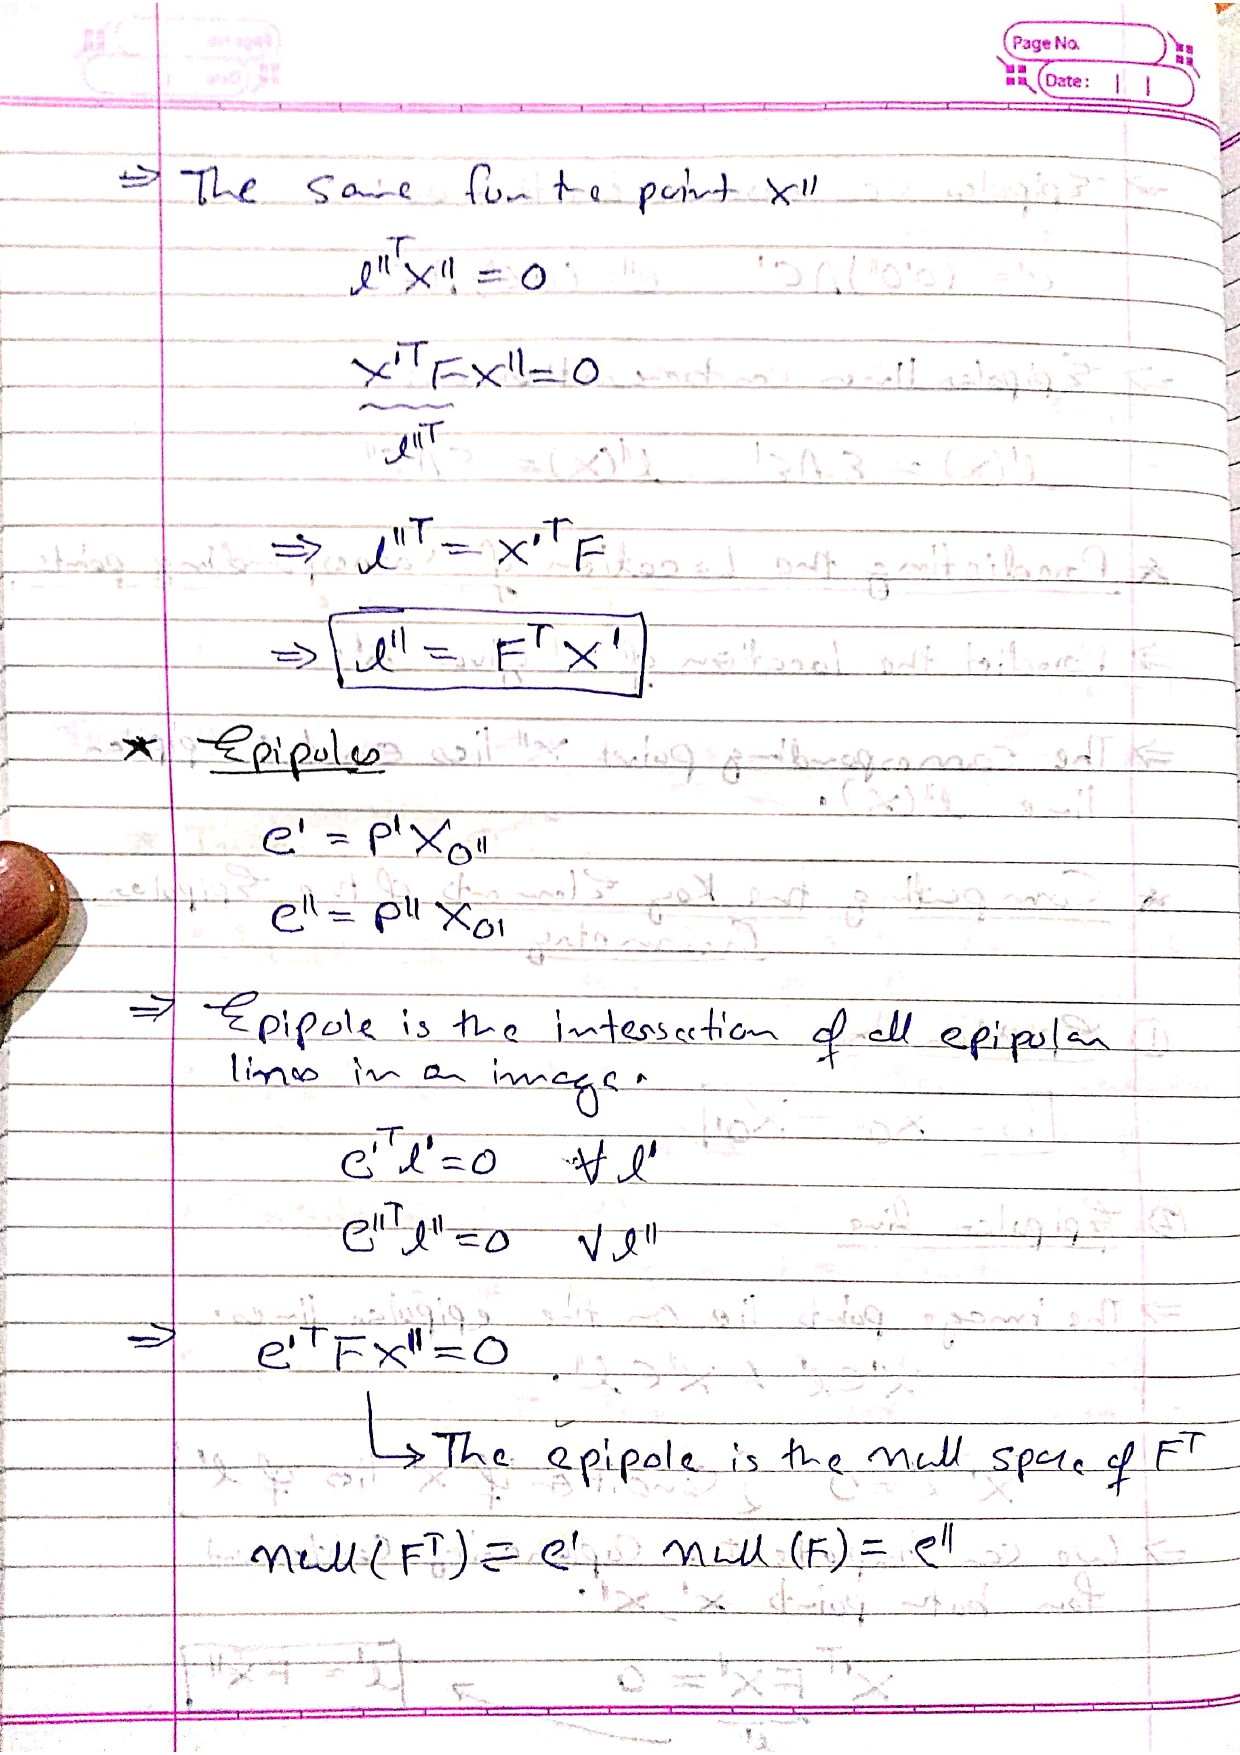 Page No.
Date:
⇒ The same for the point x''
l''ᵀx'' = 0
x'ᵀFx'' = 0
l''ᵀ
⇒ l''ᵀ = x'ᵀF
⇒ l'' = Fᵀx'
* Epipoles
e' = P'X₀''
e'' = P''X₀'
⇒ Epipole is the interssection of all epipolar
lines in an image.
e'ᵀl' = 0 ∀ l'
e''ᵀl'' = 0 ∀ l''
⇒ e'ᵀFx'' = 0
↳ The epipole is the null space of Fᵀ
null(Fᵀ) = e', null(F) = e''